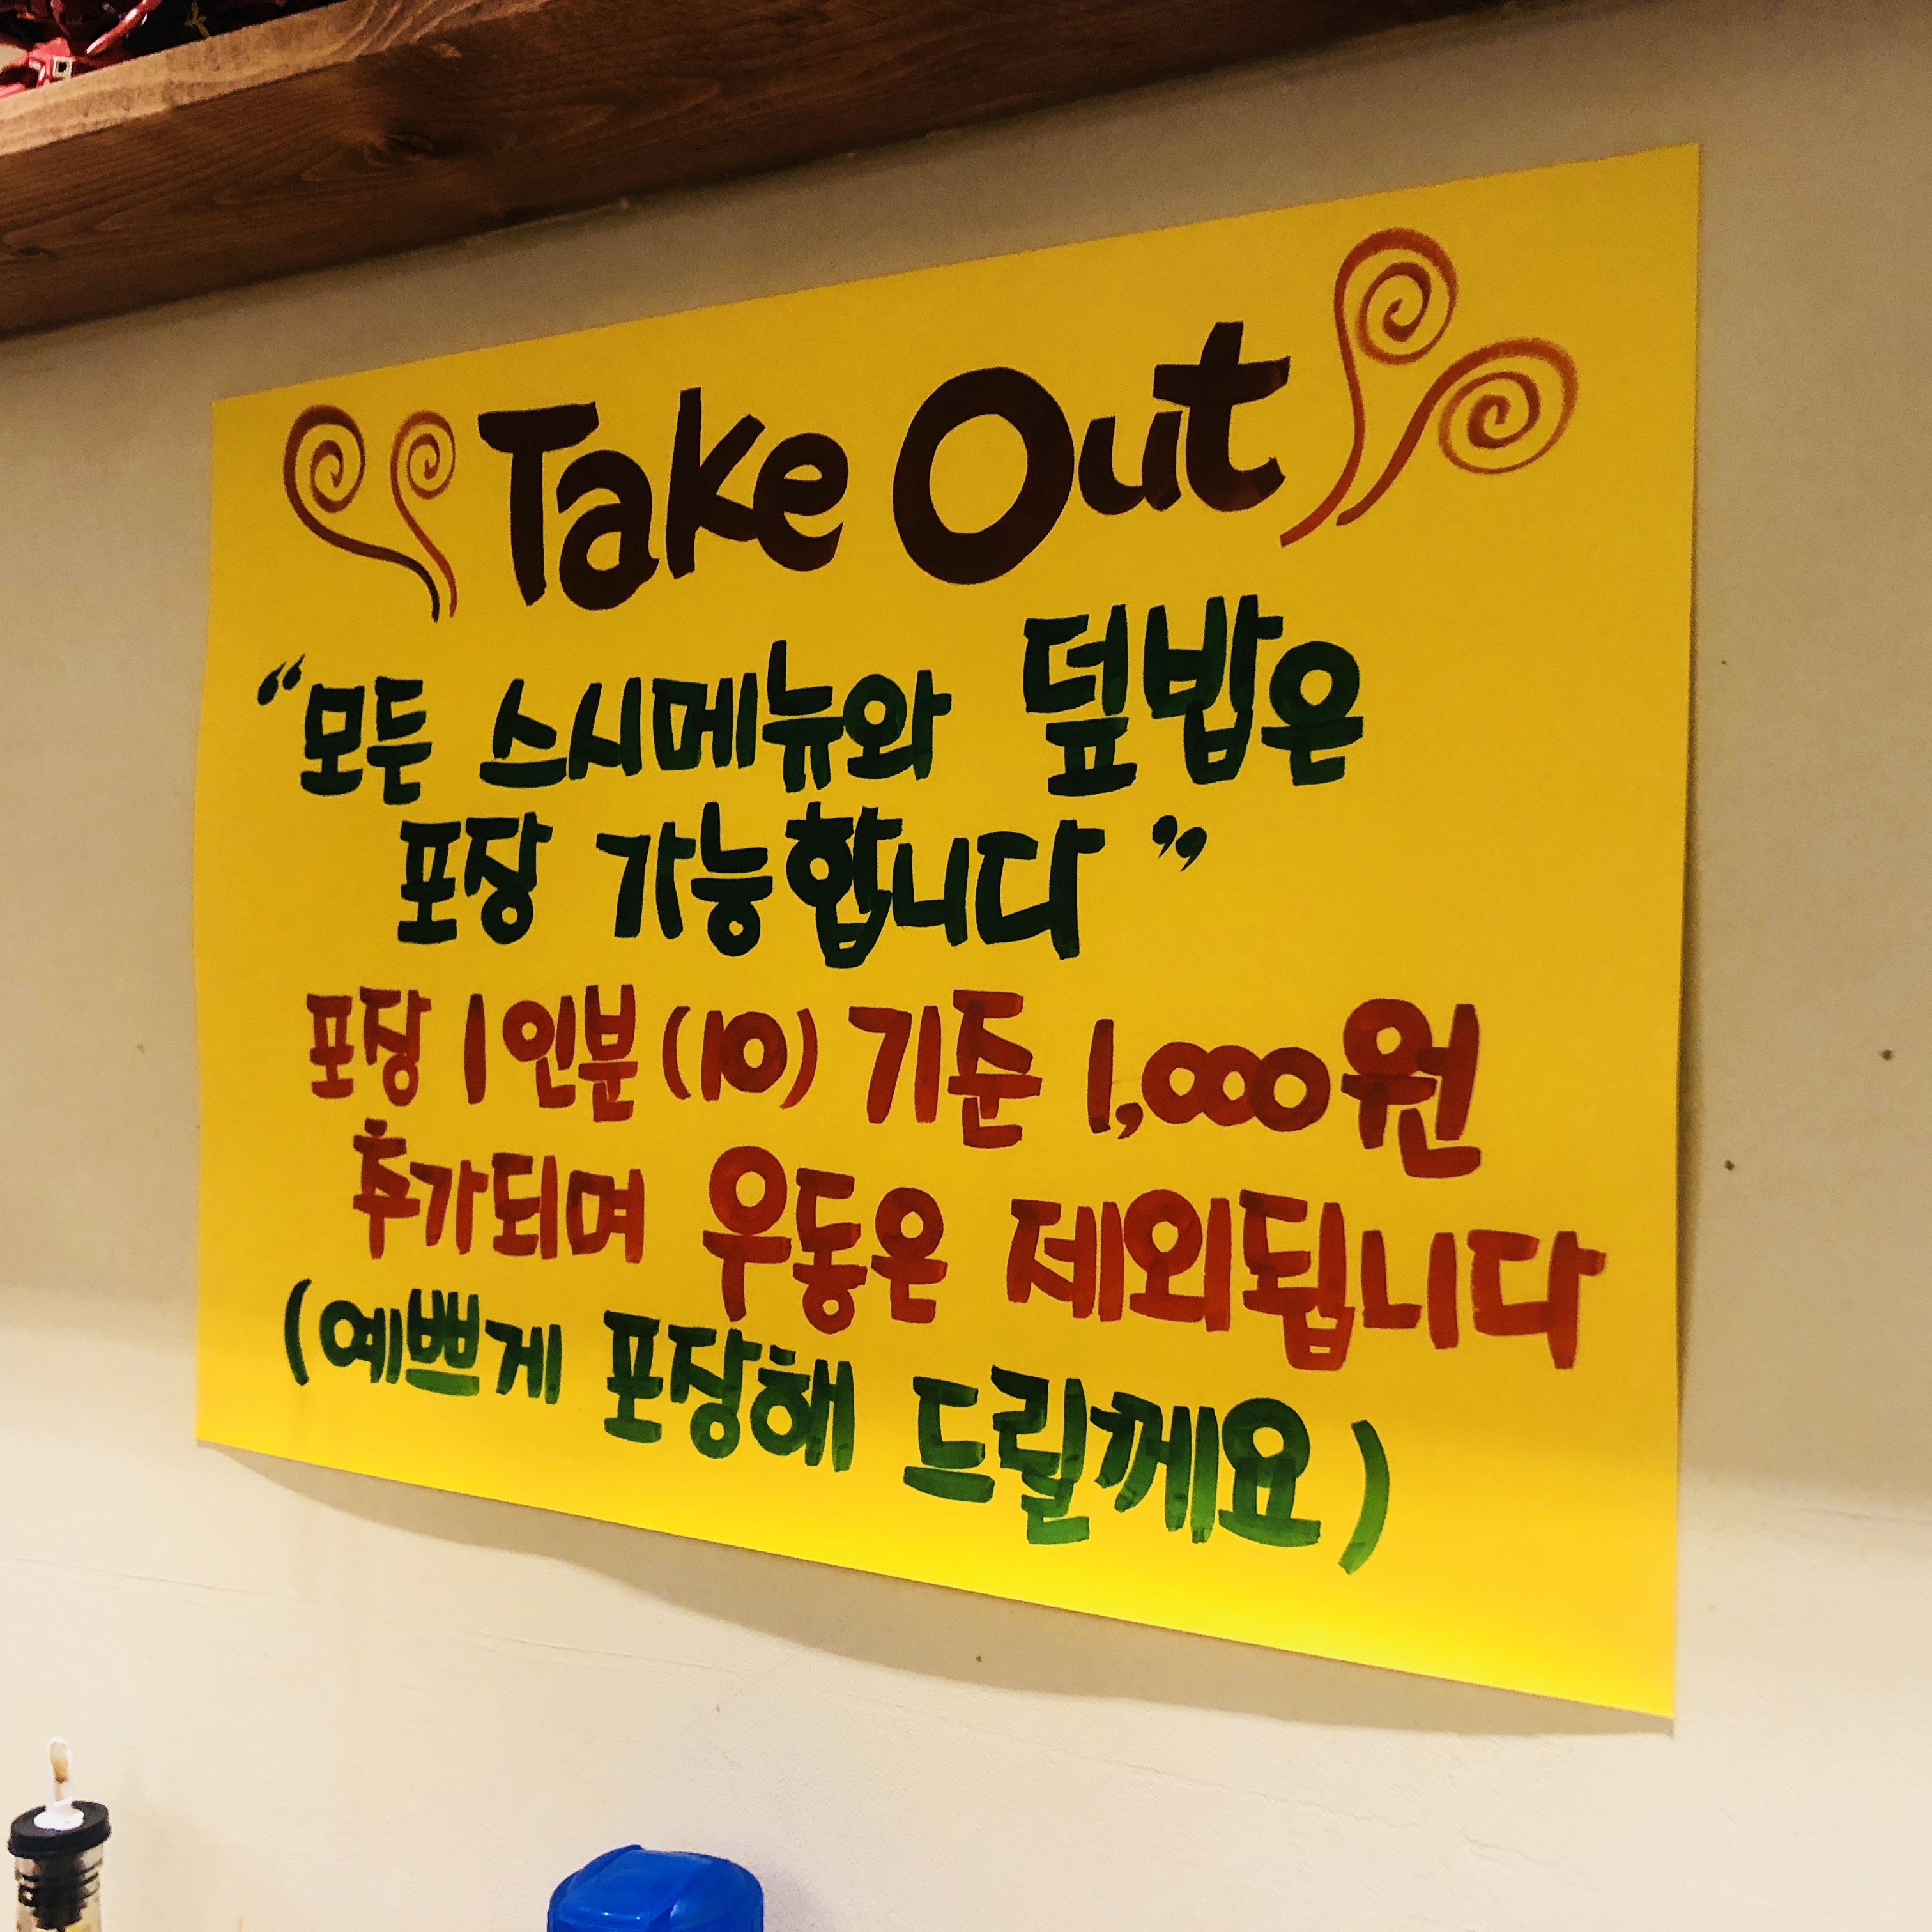 Take Out
“모든 스시메뉴와 덮밥은
포장 가능합니다”
포장 1인분(10) 기준 1,000원
추가되며 우동은 제외됩니다
(예쁘게 포장해 드릴께요)